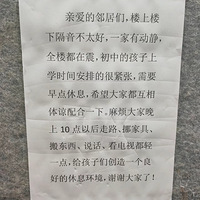 亲爱的邻居们，楼上楼
下隔音不太好，一家有动静，
全楼都在震，初中的孩子上
学时间安排的很紧张，需要
早点休息，希望大家都互相
体谅配合一下。麻烦大家晚
上 10 点以后走路、挪家具、
搬东西、说话、看电视都轻
一点，给孩子们创造一个良
好的休息环境，谢谢大家了！